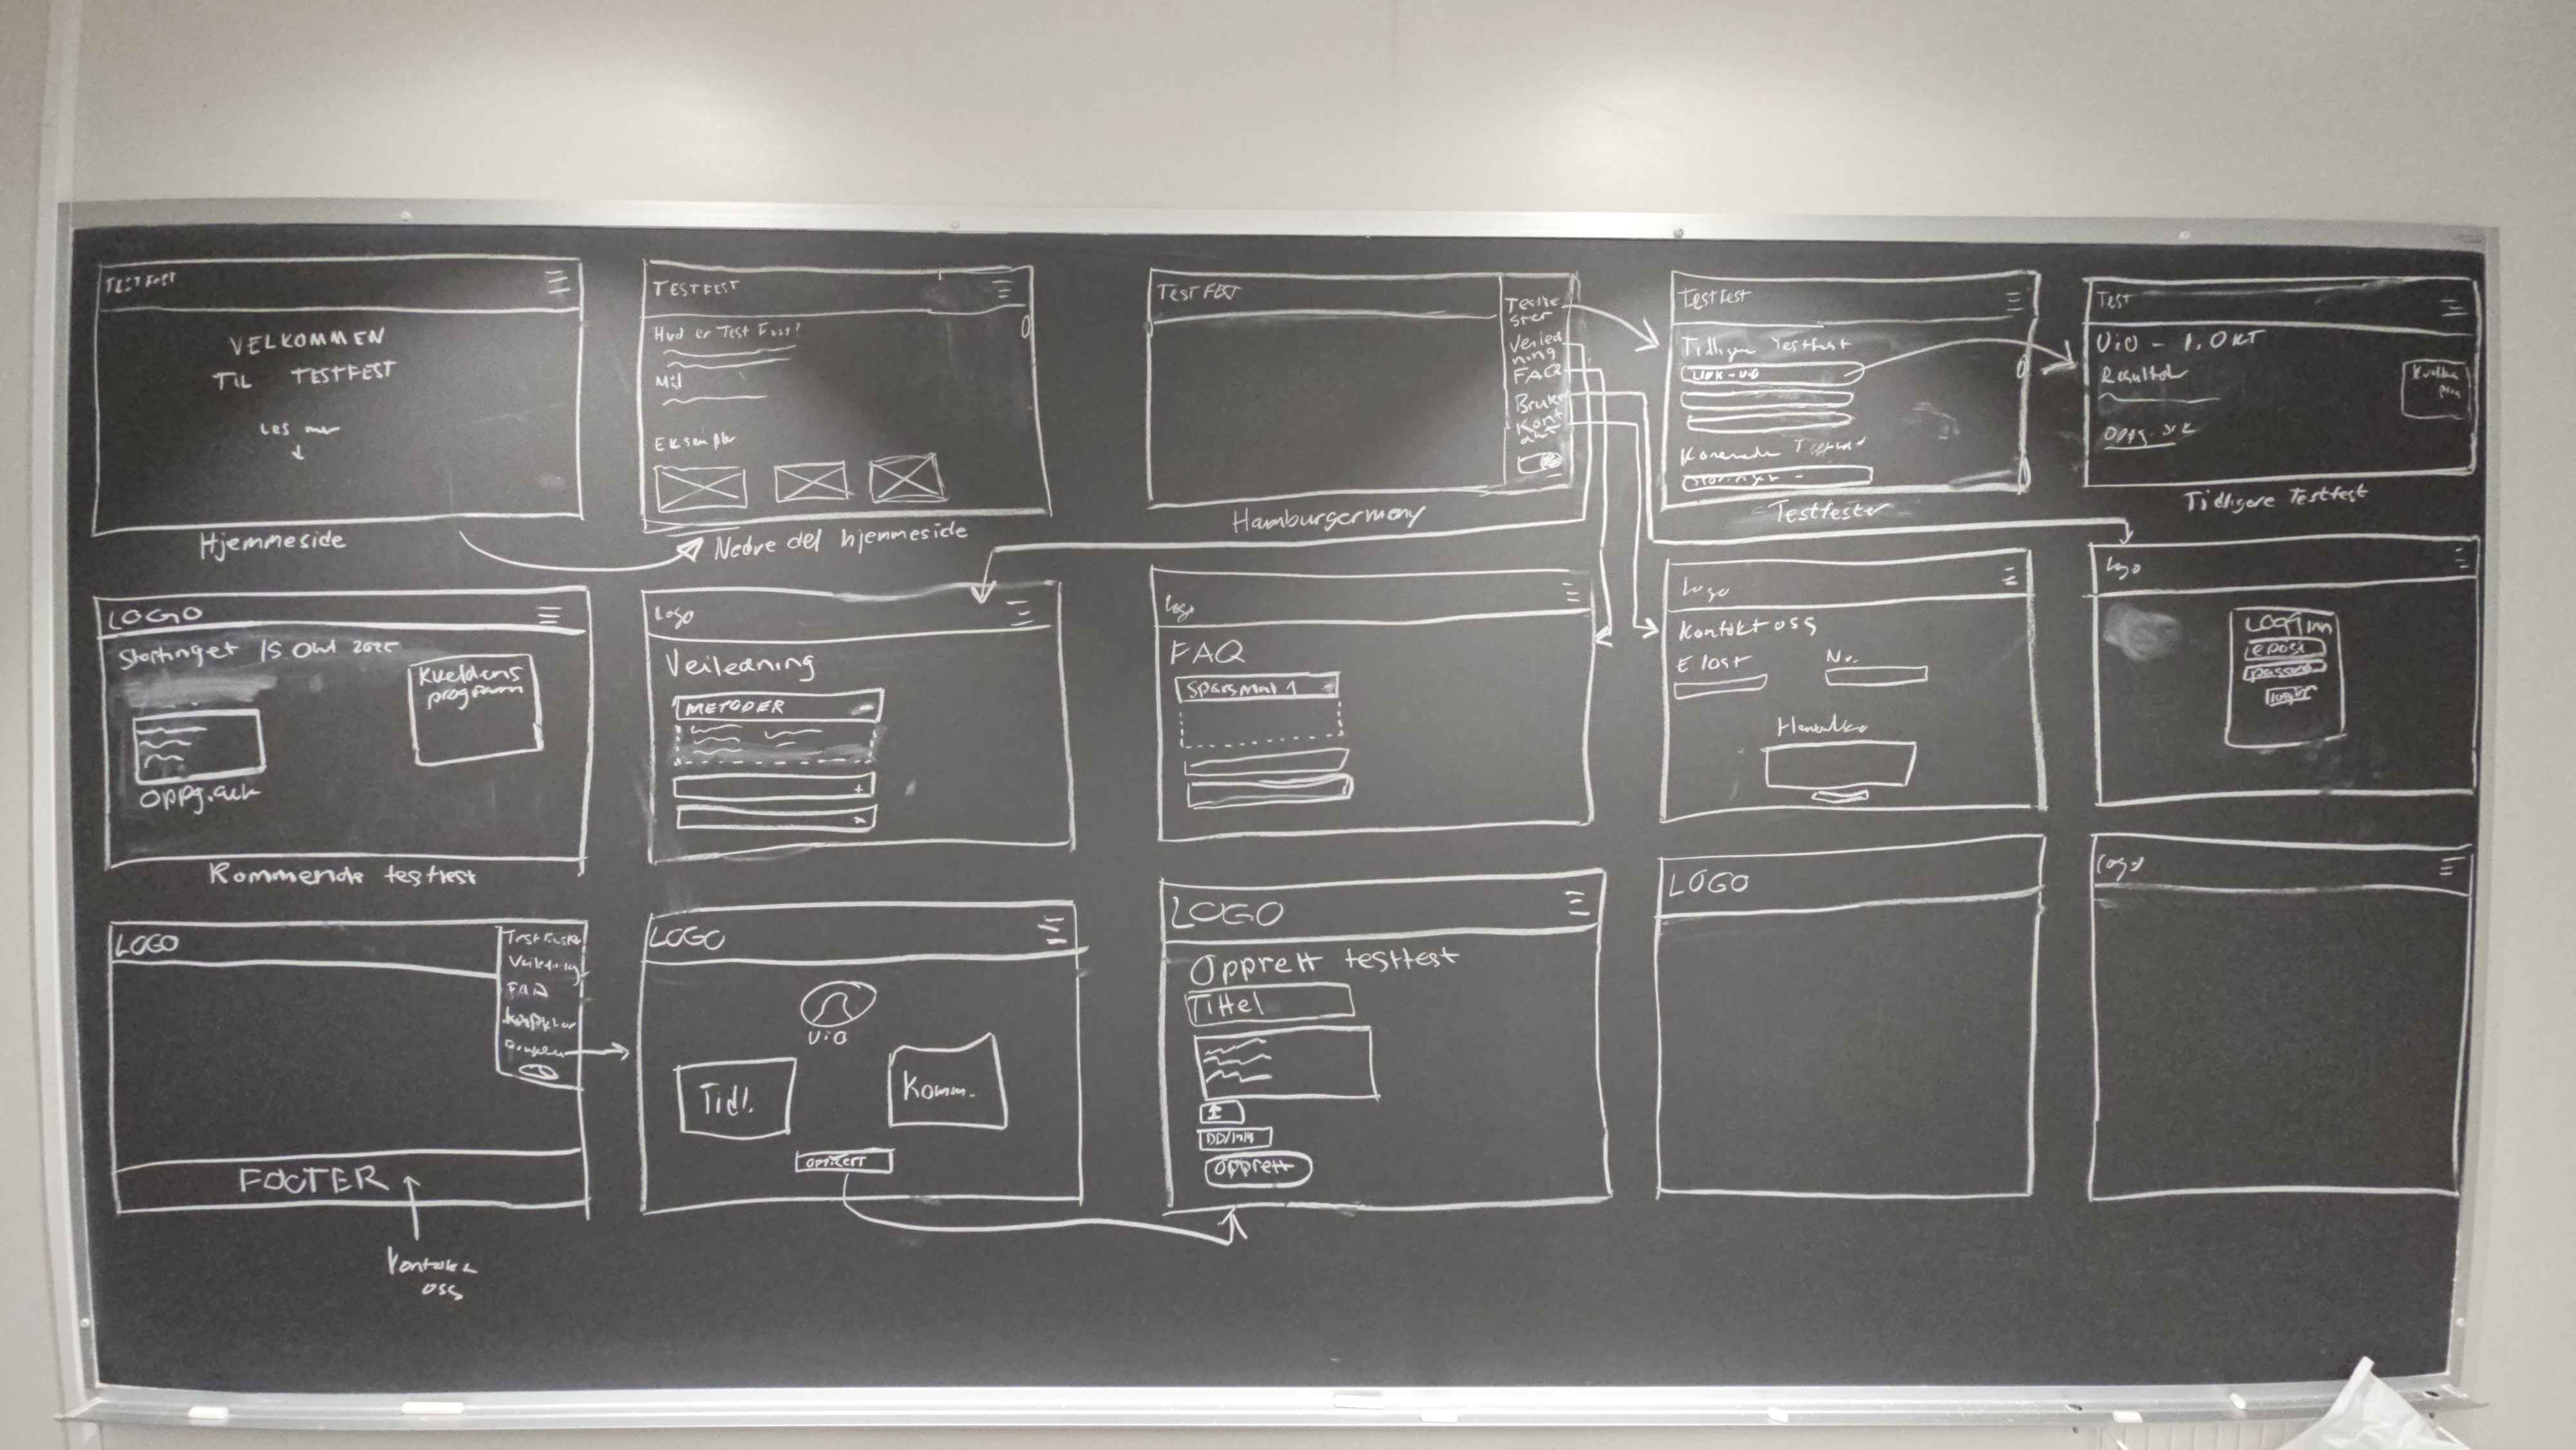 TESTFEST
VELKOMMEN
TIL TESTFEST
Les mer
Hjemmeside
TESTFEST
Hva er Test Fest?
Mål
Eksempler
Nedre del hjemmeside
TEST FEST
Testfe
ster
Veiled
ning
FAQ
Bruker
Kont
akt
Hamburgermeny
Testfest
Tidligere Testfest
LINK - UiO
Kommende Testfest
Stortinget -
Testfester
Test
UiO - 1. OKT
Resultat
Oppg. ark
Tidligere Testfest
LOGO
Stortinget 15 Okt 2025
Kveldens
program
Oppg.ark
Kommende testfest
Logo
Veiledning
METODER
+
Logo
FAQ
Spørsmål 1
Logo
Kontakt oss
E Post
Nr.
Logo
LOGG inn
epost
passord
logg inn
LOGO
Testfester
Veiledning
FAQ
FOOTER
Kontakt
oss
LOGO
UiO
Tidl.
Komm.
OPPRETT
LOGO
Opprett testfest
Tittel
DD/M/Å
Opprett
LOGO
Logo